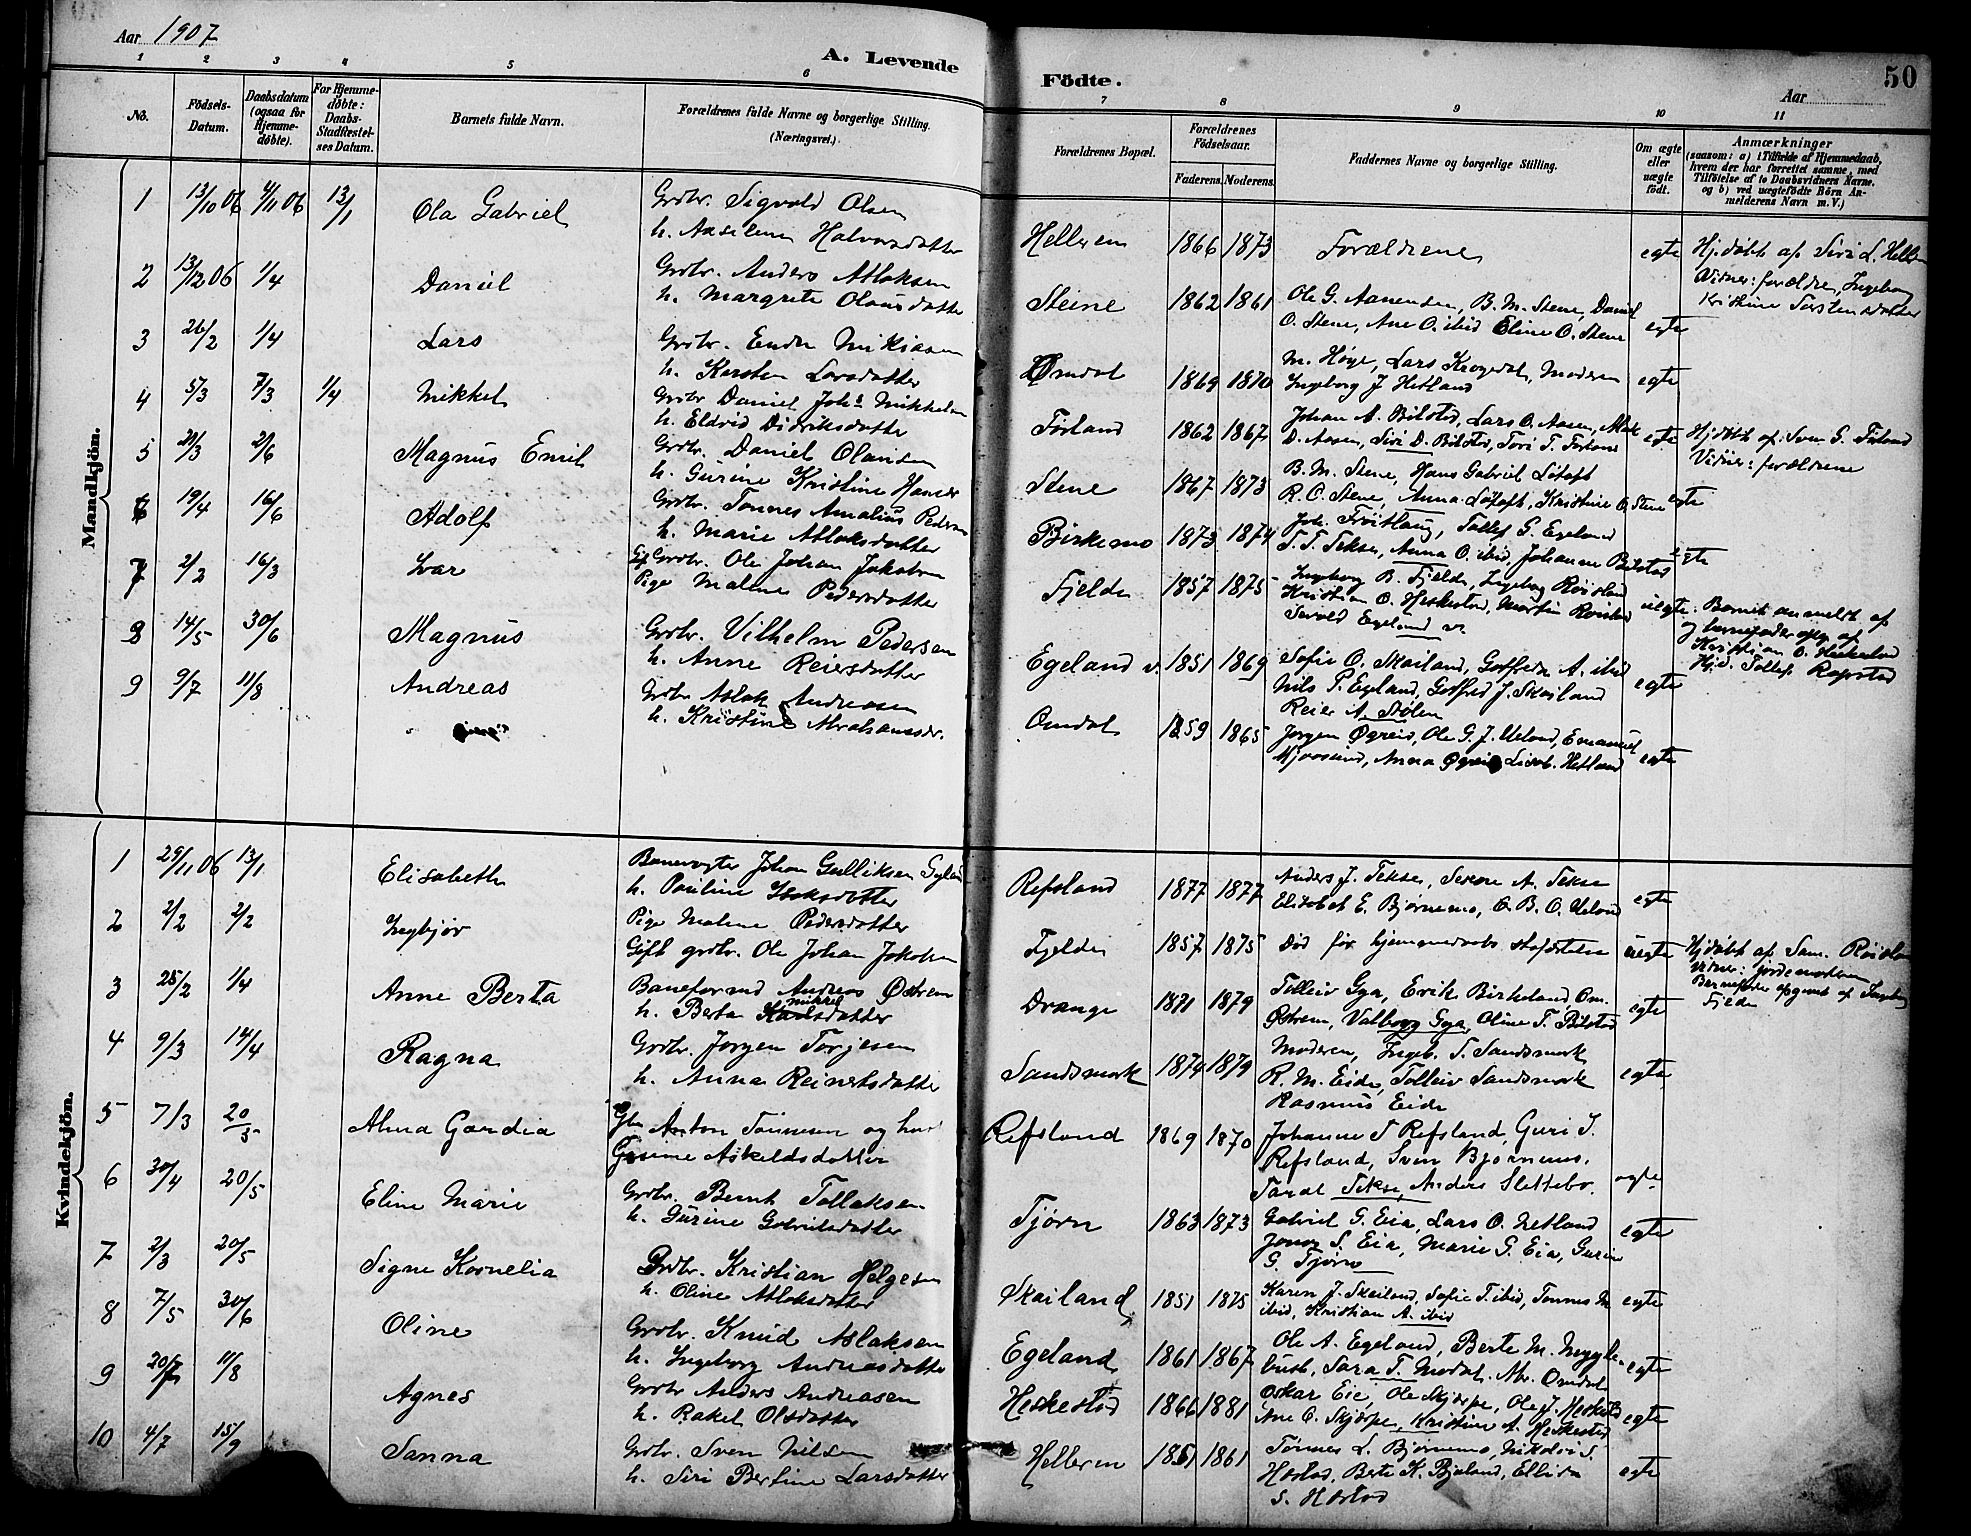 Aar 1907
A. Levende
Födte.
Aar
50
1 2 3 4 5 6 7 8 9 10 11
No.
Födsels-Datum.
Daabsdatum (ogsaa for Hjemmedöbte).
For Hjemmedöbte: Daabs-Stadfæstelses Datum.
Barnets fulde Navn.
Forældrenes fulde Navne og borgerlige Stilling. (Næringsvei.)
Forældrenes Bopæl.
Forældrenes Födselsaar.
Faderens. Moderens.
Faddernes Navne og borgerlige Stilling.
Om ægte eller uægte födt.
Anmærkninger
(saasom: a) i Tilfælde af Hjemmedaab, hvem der har forrettet samme, med Tilföielse af to Daabsvidners Navne, og b) ved uægtefödte Börn Anmelderens Navn m. V.)
Mandkjön.
1 13/10 06 4/11 06 13/1 Ola Gabriel
Grdbr. Sigvald Olsen
h. Aaselene Halvorsdatter
Helleren 1866 1873 Forældrene egte
Hj.døbt af Siri L. Helleren
Vidner: forældre, Ingeborg
Kristine Torstensdatter
2 13/12 06 1/4 Daniel
Grdbr. Anders Atlaksen
h. Margrete Olausdatter
Steine 1862 1861
Ole G. Aanensen, B. M. Stene, Daniel
O. Stene, Ane O. ibid Eline O. Stene
egte
3 26/2 1/4 Lars
Grdbr. Endre Mikiasen
h. Karsten Larsdatter
Ømdal 1869 1870
M. Høye, Lars Krogedal, Moderen
Ingeborg J Hetland
egte
4 5/3 7/3 1/4 Mikkel
Grdbr Daniel Johs Mikkelsen
h. Eldrid Didriksdatter
Førland 1862 1867
Johan A. Bilstad, Lars O. Aasen,
D. Aasen, Siri D. Bilstad, Tori T. Førland
egte
Hj.døbt af: Sven G. Førland
Vidner: forældrene
5 29/3 2/6 Magnus Emil
Grdbr. Daniel Olausen
h. Gurine Kristine Hansdr
Stene 1867 1873
B. M. Stene, Hans Gabriel Løtoft
R. O. Stene, Anna Løtoft, Kristine O. Stene
egte
6 19/4 16/6 Adolf
Grdbr. Tønnes Amalius Pedersen
h. Marie Atlaksdatter
Birkemo 1873 1874
Joh. Frøitlaug, Tollef G. Egeland
T. T. Tekse, Anna O. ibid, Johanne Bilstad
egte
7 2/2 16/3 Ivar
Gf. Grdbr. Ole Johan Jakobsen
Pige Malene Pedersdatter
Fjelde 1857 1875
Ingeborg B. Fjelde, Ingeborg Røisland
Kristian O. Heskestad, Martin Røisland
Tarald Egeland v.
uegte
Barnet anmeldt af
og barnefader opg. af
Kristian O. Heskestad
Hjd. Tollef Rapstad
8 14/5 30/6 Magnus
Grdbr. Vilhelm Pedersen
h. Anne Reiersdatter
Egeland v. 1851 1869
Sofie O. Skailand, Gotfreda A. ibid
Nils P. Egeland, Gotfred J. Skailand
Reier A. Stølen
egte
9 9/7 11/8 Andreas
Grdbr Aslak Andreasen
h. Kristine Abrahamsdr.
Omdal 1859 1865
Jørgen Øgreid, Ole G. J. Ueland, Emanuel
Mjaasund, Anna Øgreid Lisab. Hetland
egte
Kvindekjön.
1 29/11 06 13/1 Elisabeth
Banevogter Johan Gulliksen Gyland
h. Pauline Isaksdatter
Refsland 1877 1877
Anders J. Tekse, Severe A. Tekse
Elisabet E. Bjørnemo, O. B. O. Ueland
egte
2 2/2 2/2 Ingbjør
Pige Malene Pedersdatter
Gift grdbr. Ole Johan Jakobsen
Fjelde 1857 1875 Død før hjemmedaabs stafæstelse uegte
Hj.døbt af Sam. Røisland
Vidner: jordemoderen
Barnefader opgivet af Ingeborg
Fjelde
3 25/2 1/4 Anne Berta
Baneformd Andreas Østrem
h. Berta Mikkelsdatter
Drange 1871 1879
Tolleiv Gya, Erik Birkeland Om.
Østrem, Valborg Gya, Oline T. Bilstad
egte
4 9/3 14/4 Ragna
Grdbr. Jørgen Torjesen
h. Anna Reinertsdatter
Sandsmark 1874 1879
Moderen, Ingeb. T. Sandsmark
R. M. Eide, Tolleiv Sandsmark
Rasmus Eide
egte
5 7/3 20/5 Alma Gardia
Gbr Anton Tønnesen og hus
Gurine Askeldsdatter
Refsland 1869 1870
Johanne T Refsland, Guri T.
Refsland, Sven Bjørnemo,
Taral Tekse, Anders Slettebø.
egte
6 30/4 20/5 Eline Marie
Grdbr. Bernt Tollaksen
h. Gurine Gabrielsdatter
Tjørn 1863 1873
Gabriel G. Eia, Lars O. Netland
Jonas S. Eia, Marie G. Eia, Gurine
G. Tjørn
egte
7 2/3 20/5 Signe Kornelia
Grdbr. Kristian Helgesen
h. Oline Atlaksdatter
Skailand 1851 1875
Karen J. Skailand, Sofie T. ibid, Tønnes M
ibid, Kristian A. ibid
egte
8 7/5 30/6 Oline
Grdbr. Knud Aslaksen
h. Ingeborg Andreasdatter
Egeland 1861 1867
Ole A. Egeland, Berte M. Mygle-
bust, Sara T. Modal. Abr. Omdal
egte
9 20/7 11/8 Agnes
Grdbr Anders Andreasen
h. Rakel Olsdatter
Heskestad 1866 1881
Oskar Eie, Ole Skjørpe, Ole J. Heskestad
Ane O. Skjørpe, Kristine A. Heskestad
egte
10 4/7 15/9 Sanna
Grdbr. Sven Nilsen
h. Siri Bertine Larsdatter
Helleren 1861 1861
Tønnes L. Bjørnemo, Nikolai S.
Hastad, Berte K. Bjuland, Ellida
S. Hastad
egte